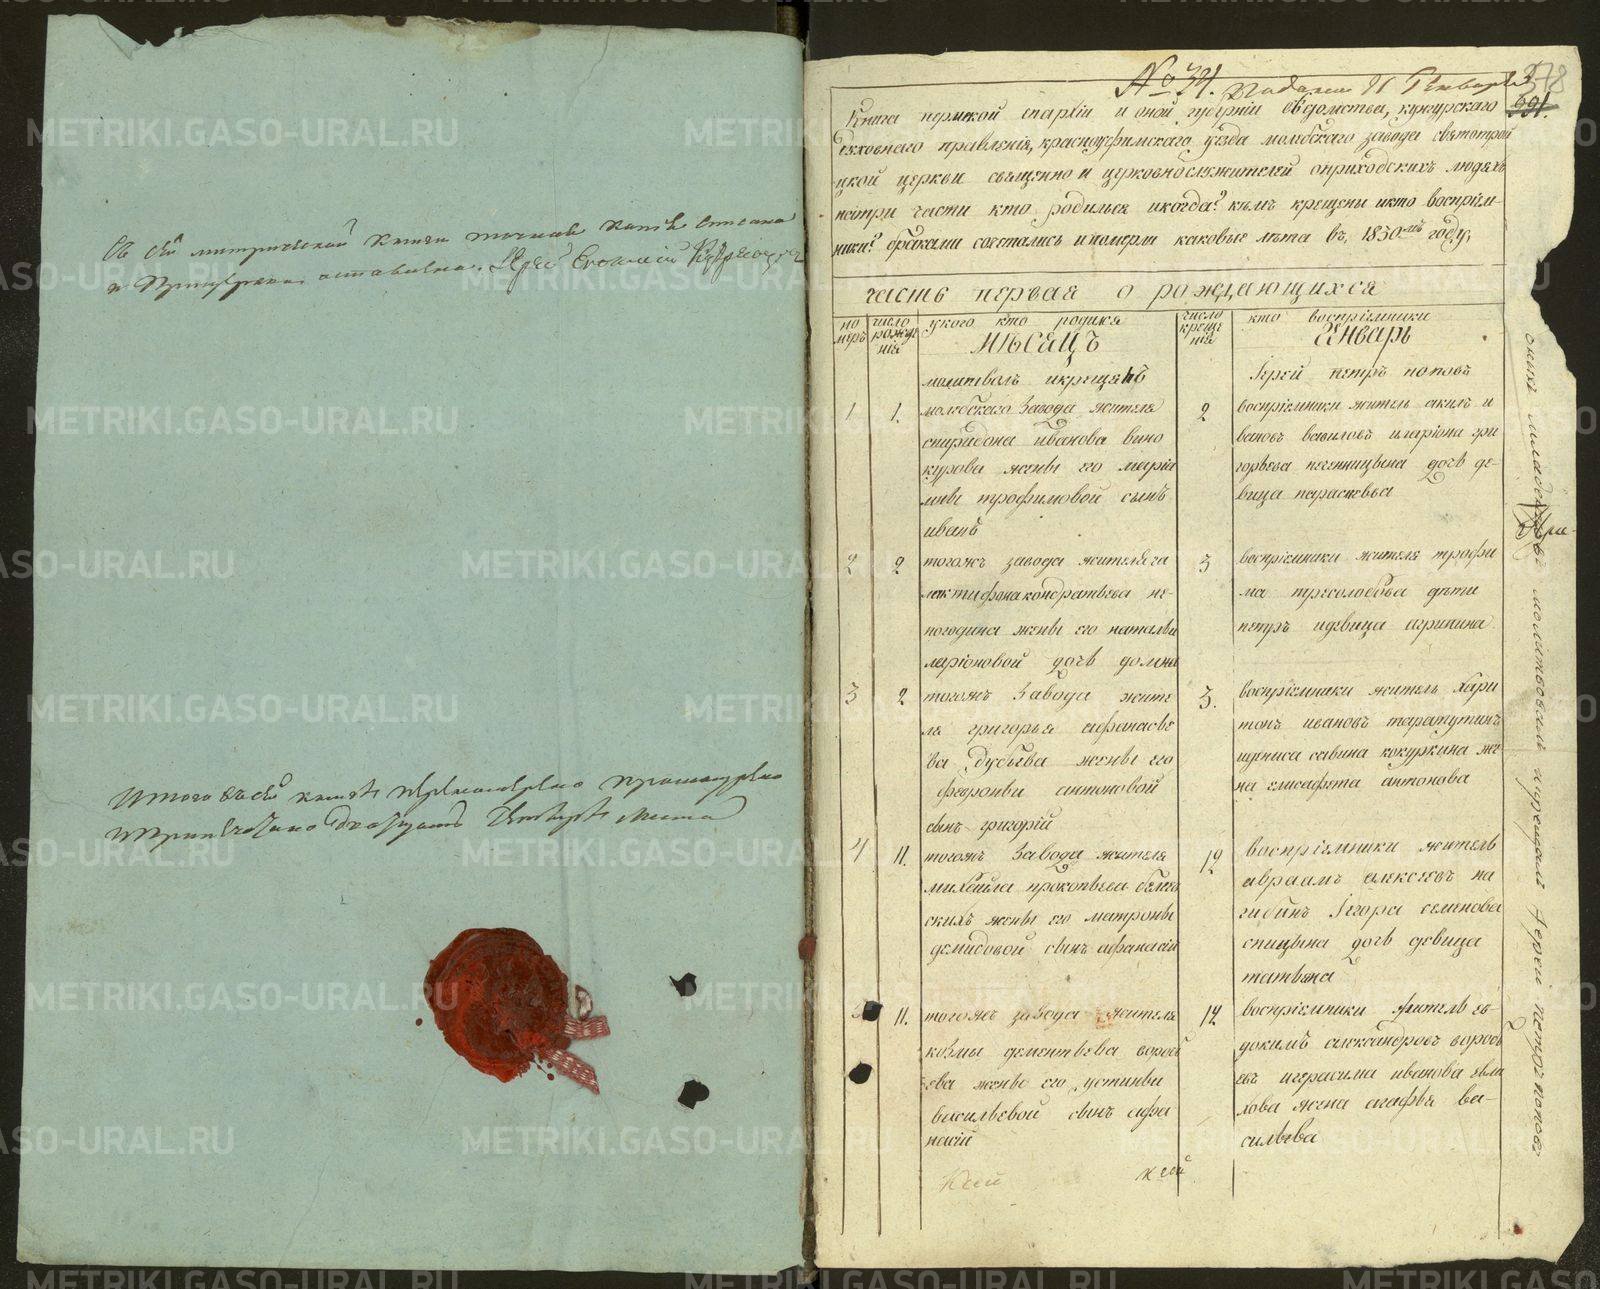 Съ сей метрической книги точная копія списана
и При церкви оставлена. Іерей
Итого въ сей книге перенумеровано прошнуровано
№ 34. Подана 21 Генваря
378
Книга пермской епархіи и оной губерніи вѣдомства, кунгурскаго
духовнаго правленія, красноуфимскаго уѣзда молебскаго завода святотрой
цкой церкви священно и церковнослужителей оприходскихъ людяхъ
натри части кто родился икогда? кѣмъ крещены икто воспріем-
ники? браками сочетались ипомерли каковые лѣта въ, 1830мъ году,
часть первая о рождающихся
но
меръ
число
рожде
нія
укого кто родился
МѢСЯЦЪ
число
креще
нія
кто воспріемники
ГЕНВАРЬ
молитвалъ икрещалъ
Іерей петръ поповъ
1
1.
молебскаго завода жителя
спиридона иванова вино
курова жены его маріи
мны трофимовой сынъ
иванъ
2
воспріемники житель акилъ и
вановъ вавиловъ иларіона гри
горьева печенницына дочь де-
вица парасковья
2
2
тогожъ завода жителя га
лактифона кондратьева не-
погодина жены его натальи
ларіоновой дочь домна
3
воспріемники жителя трофи
ма пресолобова дѣти
петръ идевица агрипина
3
2
тогожъ завода жите
ля григорья афанасье
ва дубьева жены его
февроньи антоновой
сынъ григорій
3.
воспріемники житель хари
тонъ ивановъ тарапутинъ
идениса савина кокуркина же
на елисафета антонова
4
11.
тогожъ завода жителя
михайла прокопьева бѣлев
скихъ жены его матроны
демидовой сынъ афанасій
12
воспріемники житель
авраамъ алексѣевъ на
гибинъ Ігора семенова
спицына дочь девица
татьяна
11.
тогожъ завода жителя
козмы дементьева вороб
ева жены его устиньи
васильевой сынъ афа
насій
12
воспріемники житель ев
докимъ александровъ вороб
евъ игерасима иванова
хова жена агафья ва-
сильева
оныхъ младенцовъ молитвовалъ икрещалъ Іерей Петръ Поповъ